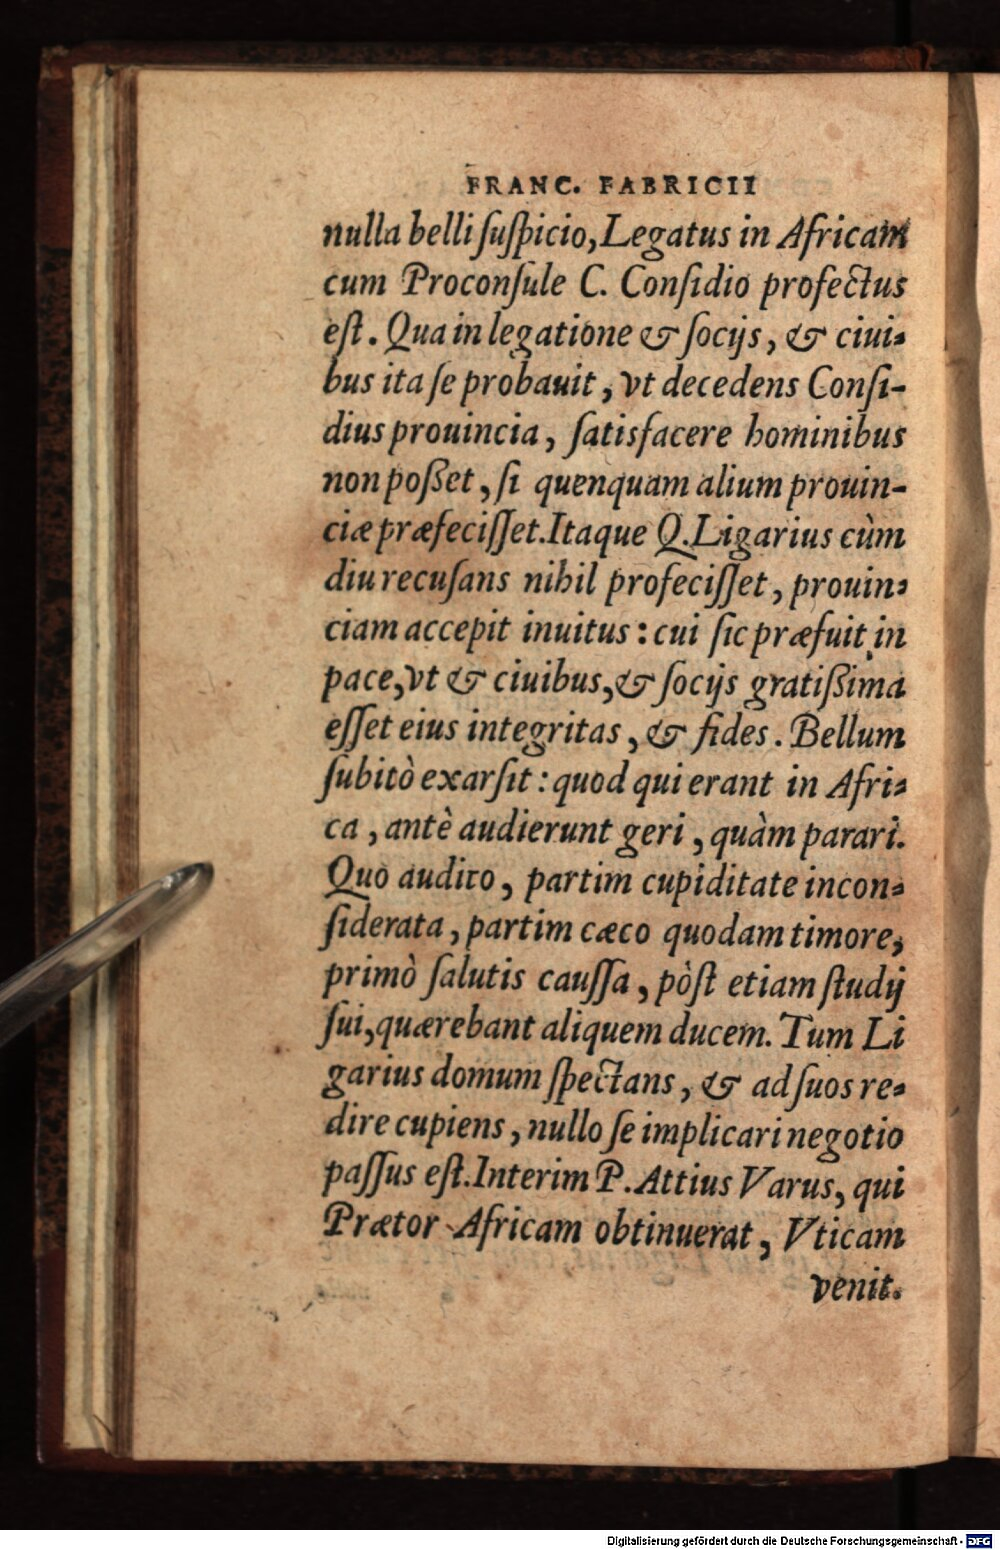 FRANC. FABRICII
nulla belli ſuſpicio, Legatus in Africam
cum Proconſule C. Conſidio profectus
eſt. Qua in legatione & ſocijs, & ciui-
bus ita ſe probauit, vt decedens Conſi-
dius prouincia, ſatisfacere hominibus
non poßet, ſi quenquam alium prouin-
ciæ præfeciſſet. Itaque Q. Ligarius cùm
diu recuſans nihil profeciſſet, prouin-
ciam accepit inuitus: cui ſic præfuit in
pace, vt & ciuibus, & ſocijs gratißima
eſſet eius integritas, & fides. Bellum
ſubitò exarſit: quod qui erant in Afri-
ca, antè audierunt geri, quàm parari.
Quo audito, partim cupiditate incon-
ſiderata, partim cæco quodam timore,
primò ſalutis cauſſa, pòſt etiam ſtudij
ſui, quærebant aliquem ducem. Tum Li
garius domum ſpectans, & ad ſuos re-
dire cupiens, nullo ſe implicari negotio
paſſus eſt. Interim P. Attius Varus, qui
Prætor Africam obtinuerat, Vticam
venit.
Digitalisierung gefördert durch die Deutsche Forschungsgemeinschaft - DFG